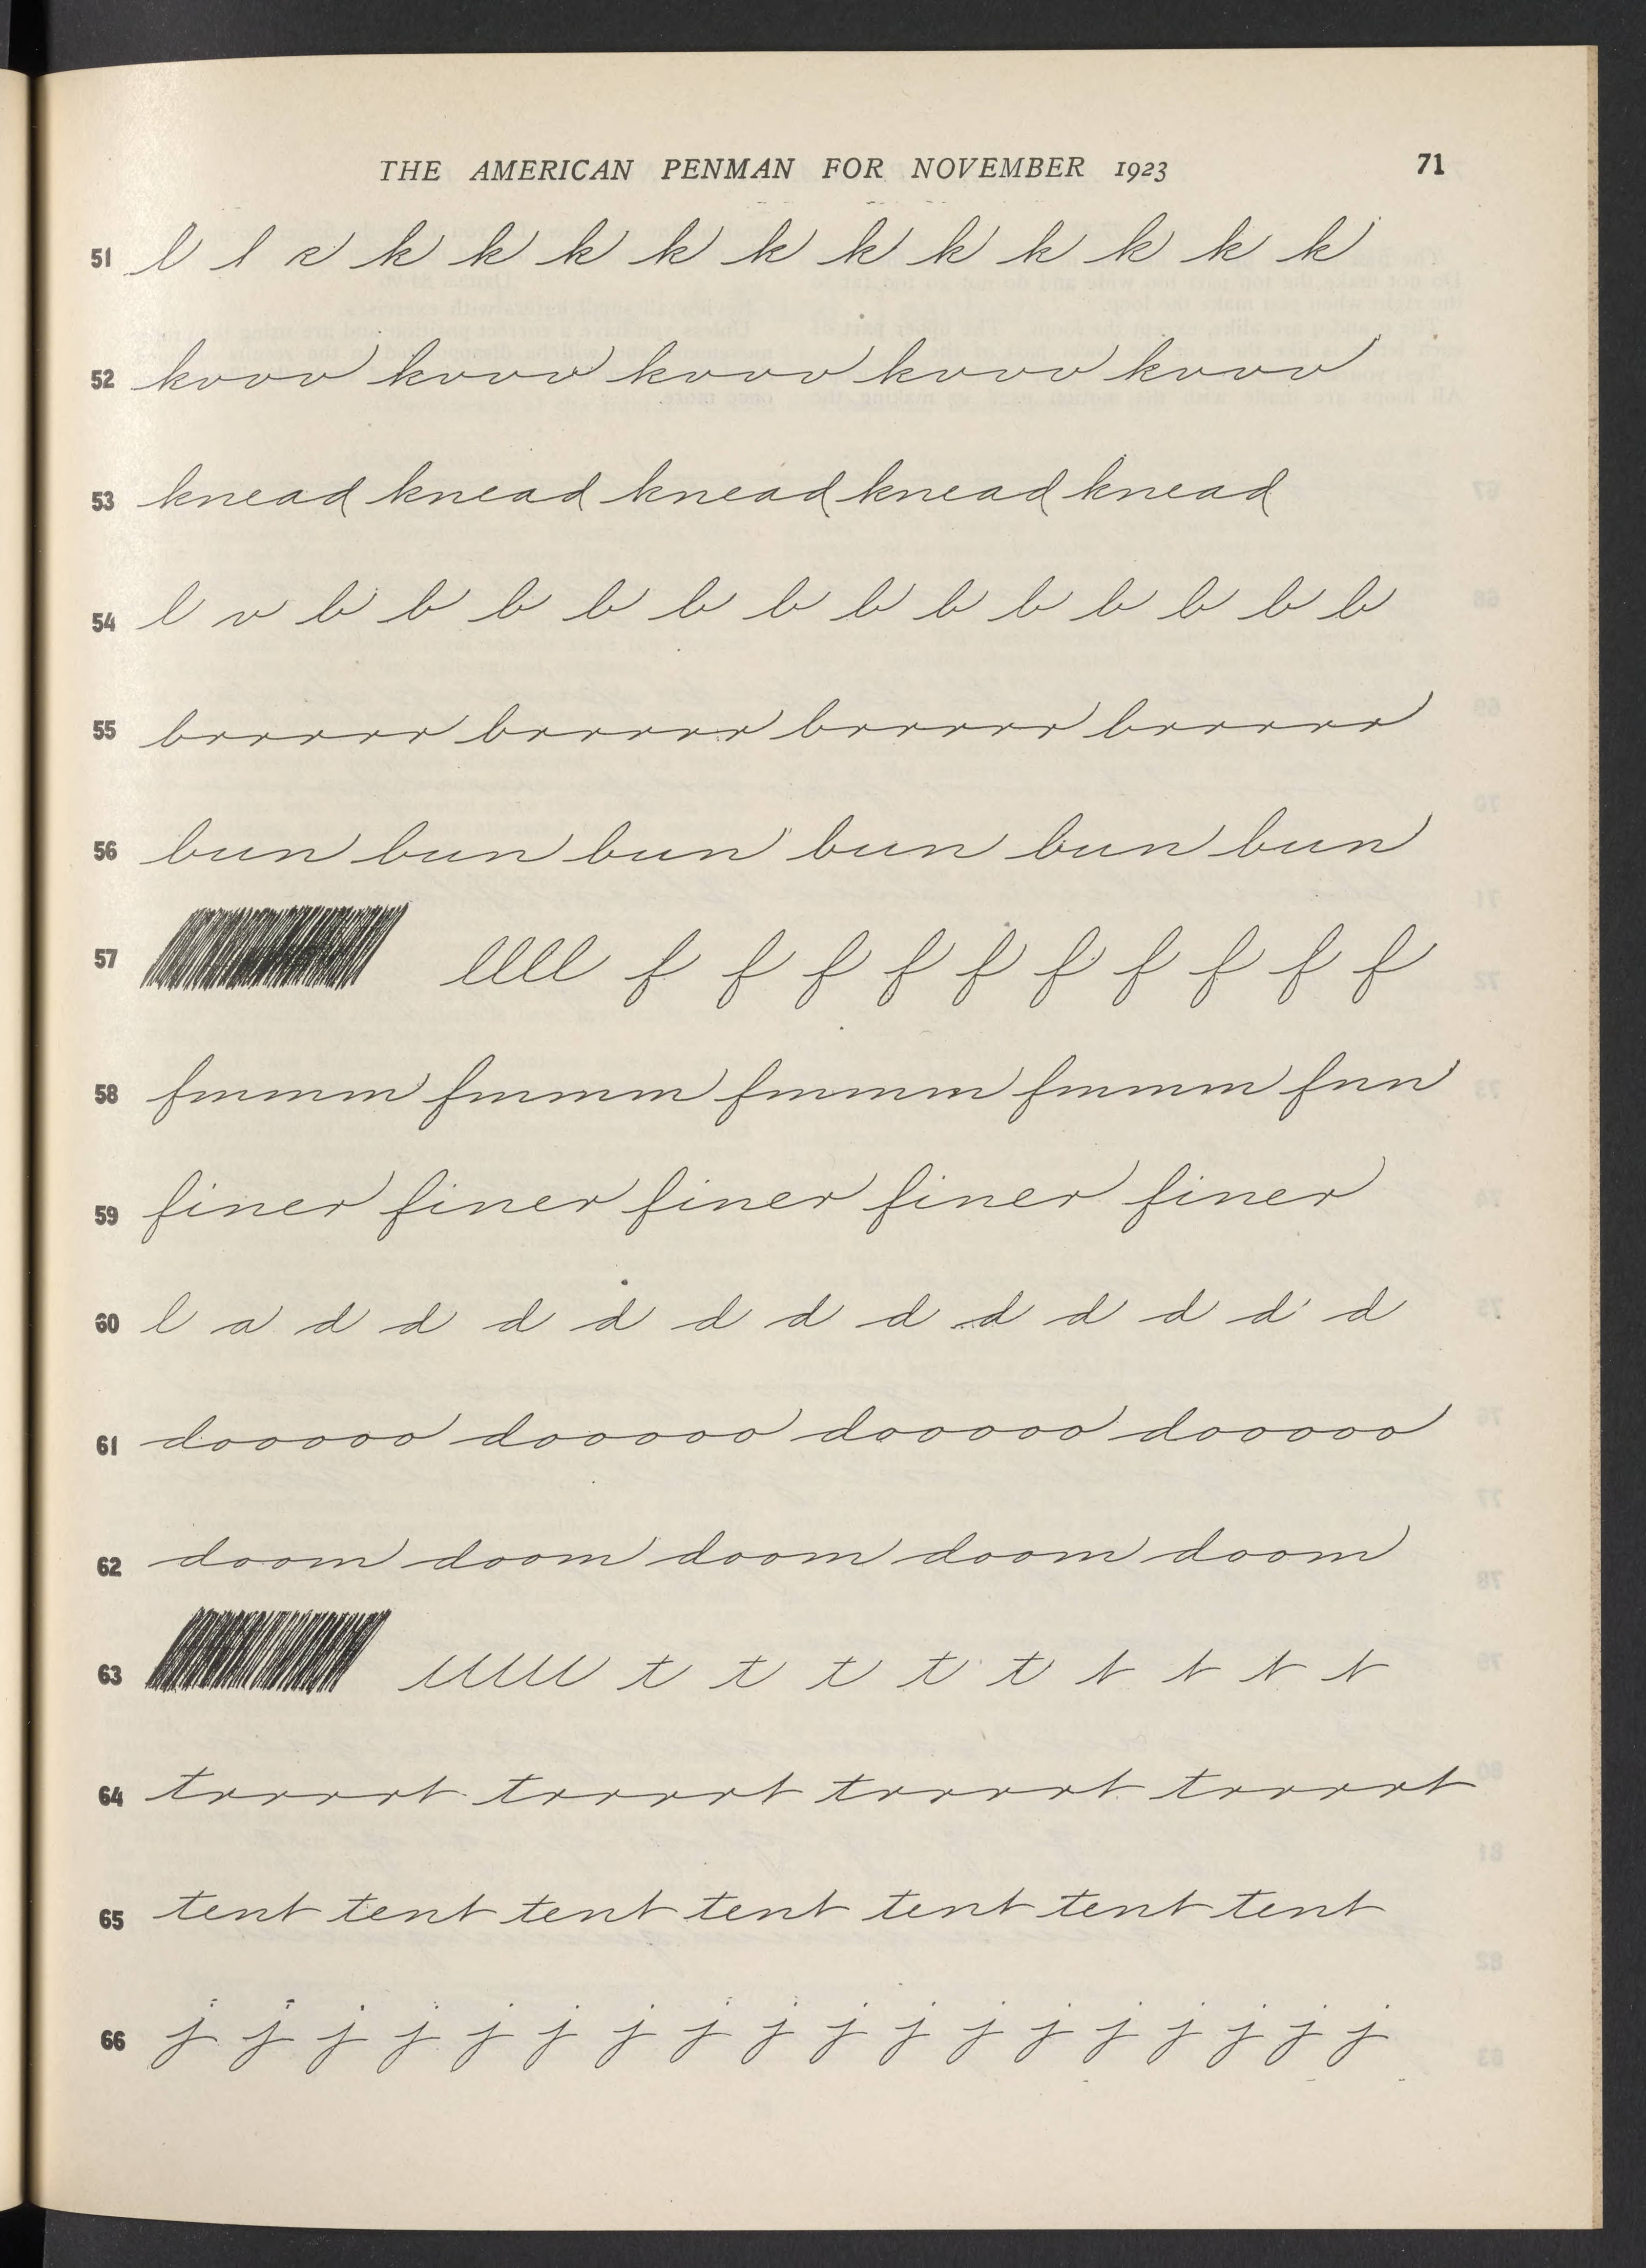 THE AMERICAN PENMAN FOR NOVEMBER 1923 71
51 l l k k k k k k k k k k k
52 kvvv kvvv kvvv kvvv kvvv
53 knead knead knead knead knead
54 l v b b b b b b b b b b b b b
55 brrrrr brrrrr brrrrr brrrrr
56 bun bun bun bun bun bun
57 llll f f f f f f f f f f
58 fmmm fmmm fmmm fmmm fnn
59 finer finer finer finer finer
60 l a d d d d d d d d d d d d
61 dooooo dooooo dooooo dooooo
62 doom doom doom doom doom
63 t t t t t t t t t
64 trrrrt trrrrt trrrrt trrrrt
65 tent tent tent tent tent tent tent
66 j j j j j j j j j j j j j j j j j j